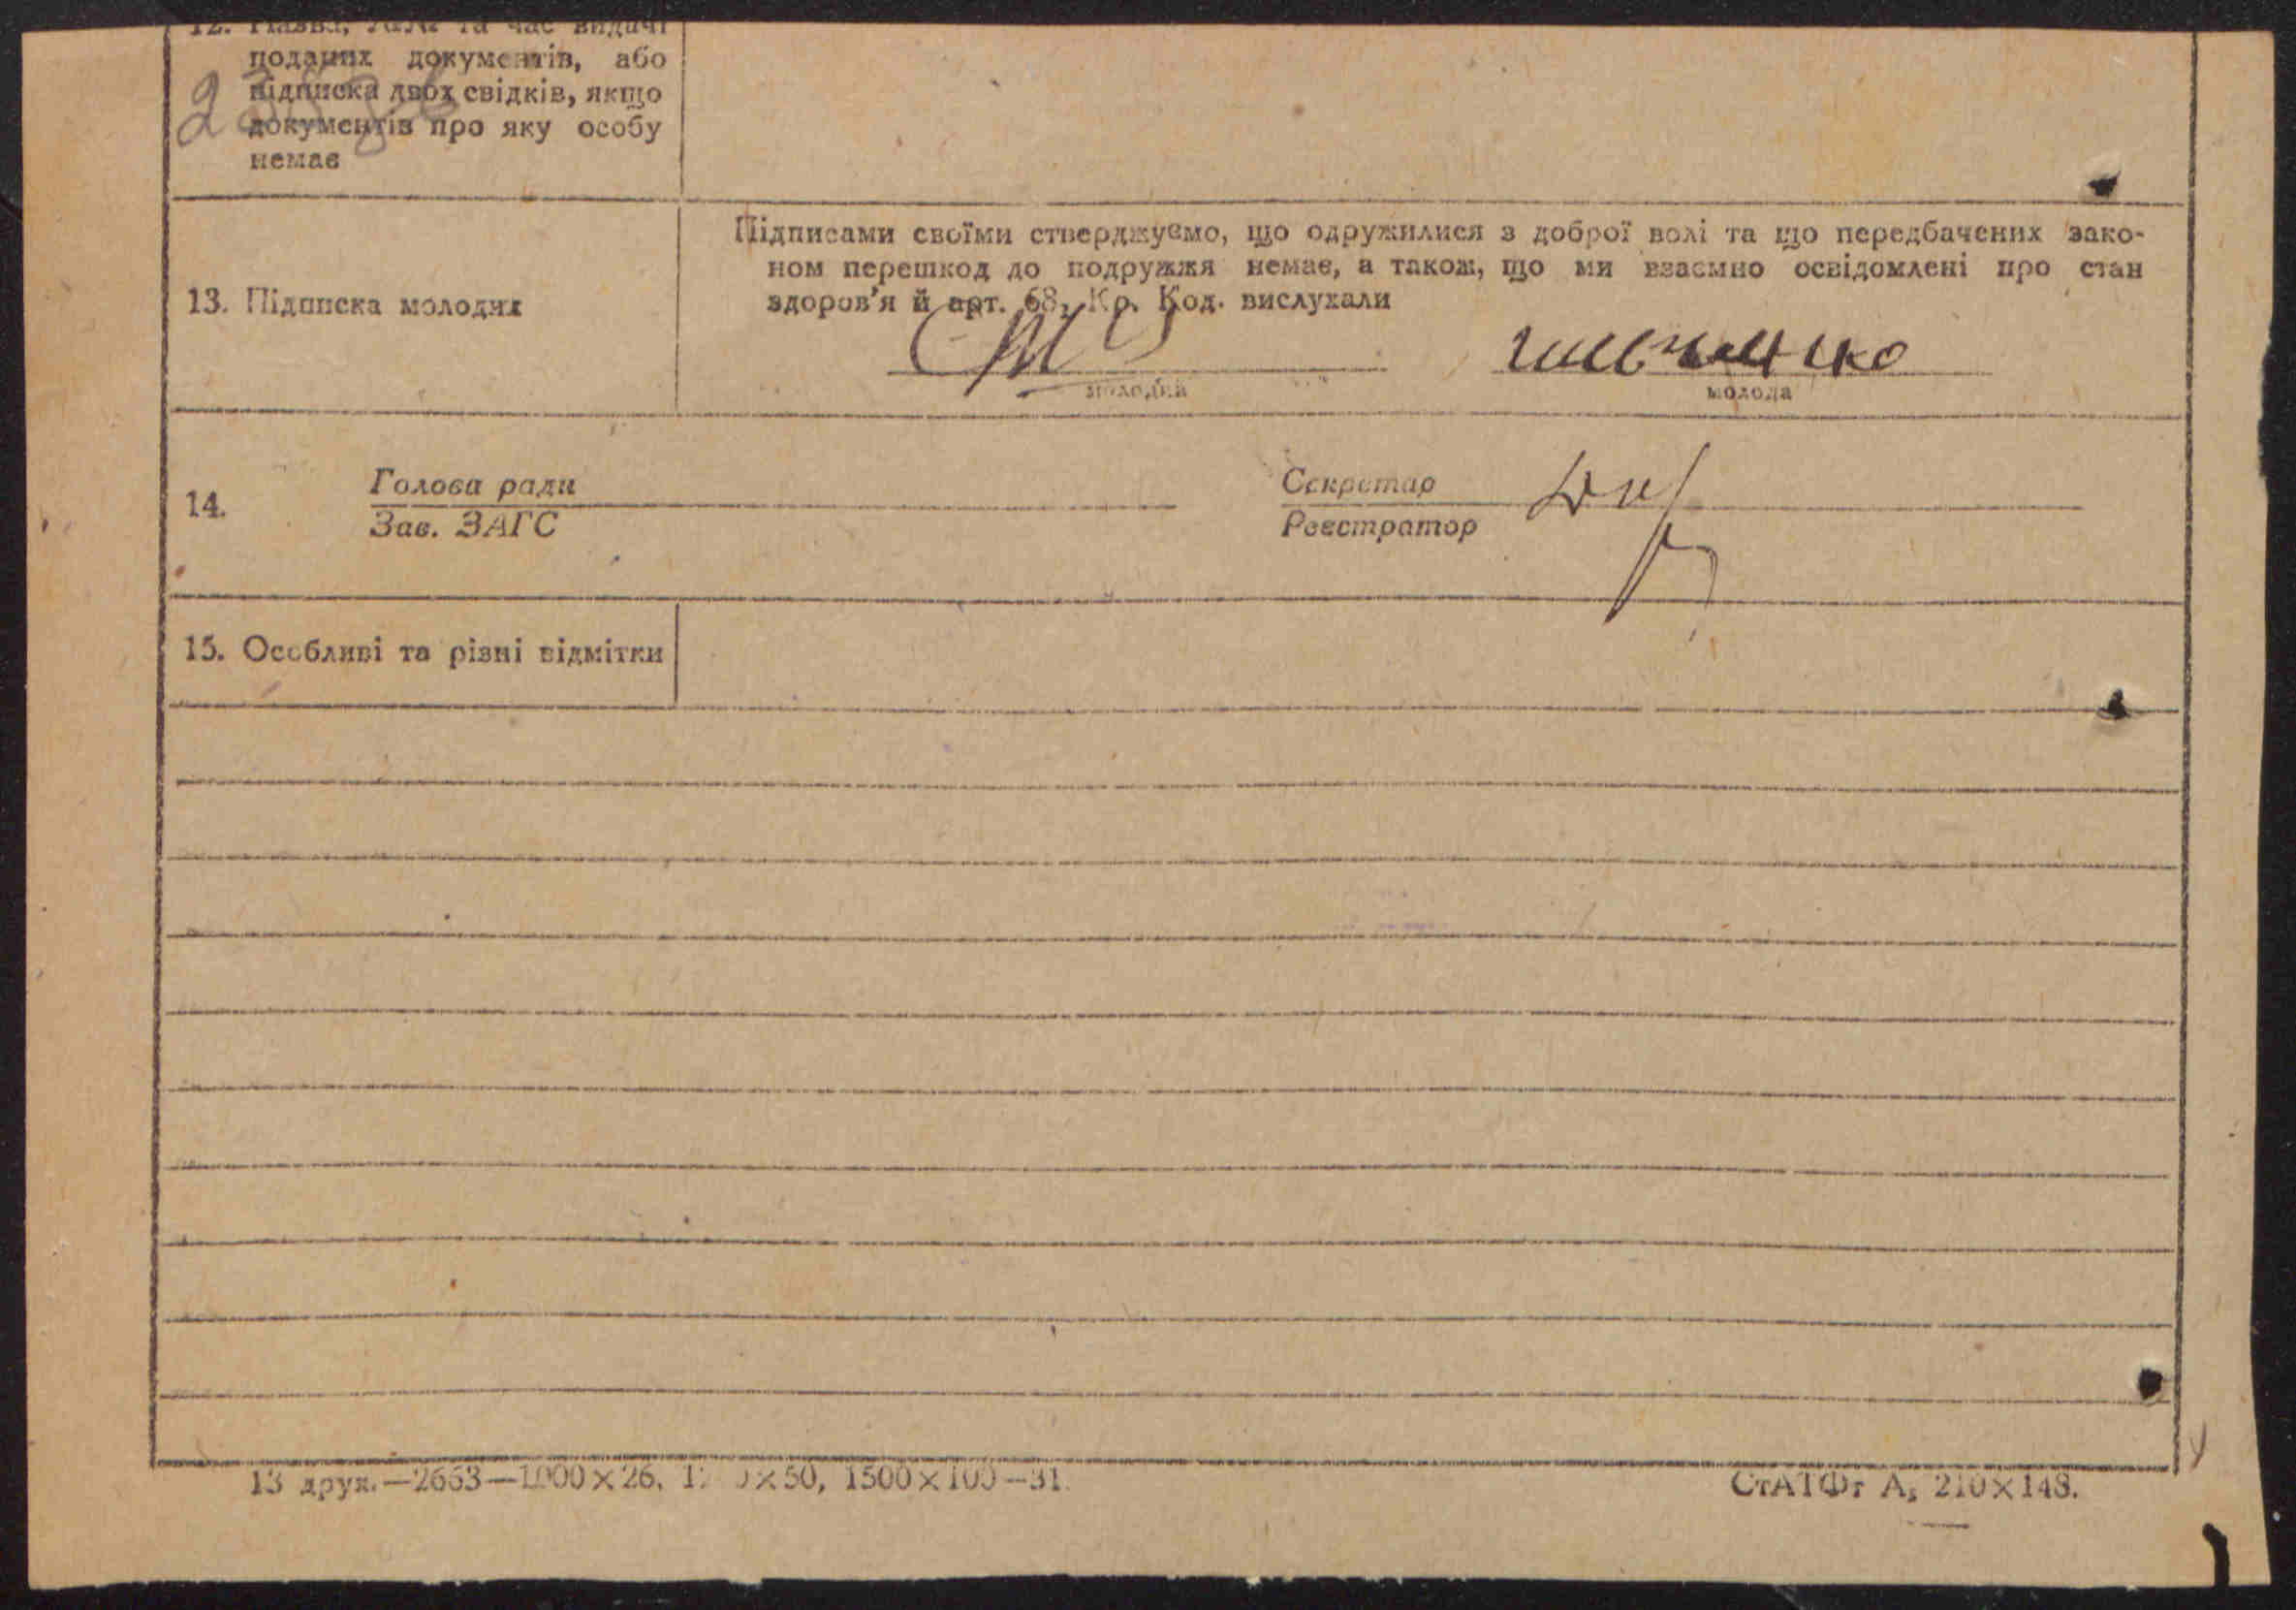 12. Назва, та час видачі
поданих документів, або
підписка двох свідків, якщо
документів про яку особу
немає
13. Підписка молодих
Підписами своїми стверджуємо, що одружилися з доброї волі та що передбачених зако-
ном перешкод до подружжя немає, а також, що ми взаємно освідомлені про стан
здоров'я й арт. 68, Кр. Код. вислухали
молодий
молода
14.
Голова ради
Зав. ЗАГС
Секретар
Реєстратор
15. Особливі та різні відмітки
13 друк.—2663—1000×26, ×50, 1500×100—31.
СтАТФт А₅ 210×148.